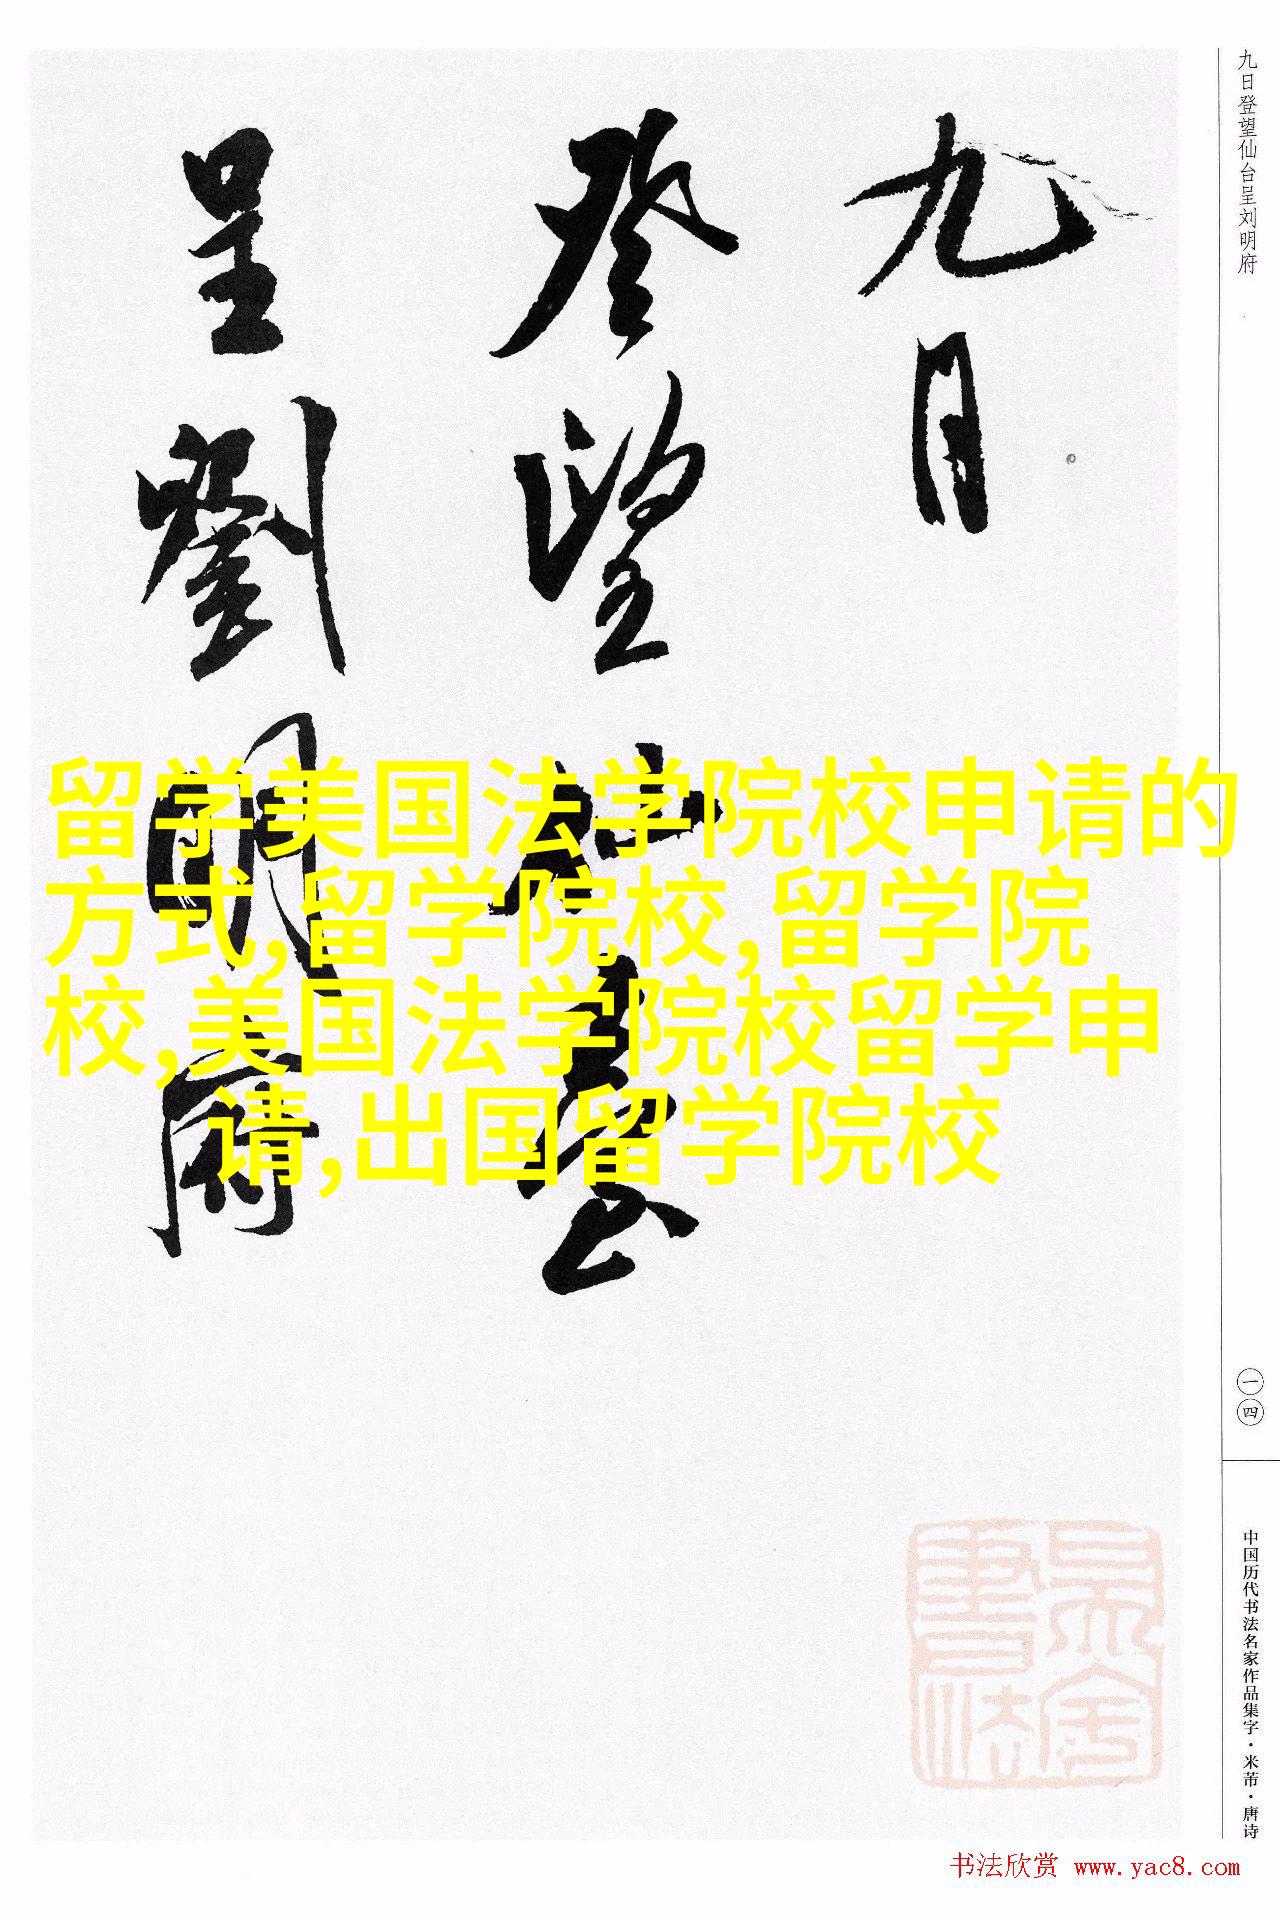 九日
登望仙臺
呈劉明府
九日登望仙台呈刘明府
留学美国法学院校申请的
方式,留学院校,留学院
校,美国法学院校留学申
请,出国留学院校
一四
中国历代书法名家作品集字·米芾·唐诗
书法欣赏 www.yac8.com